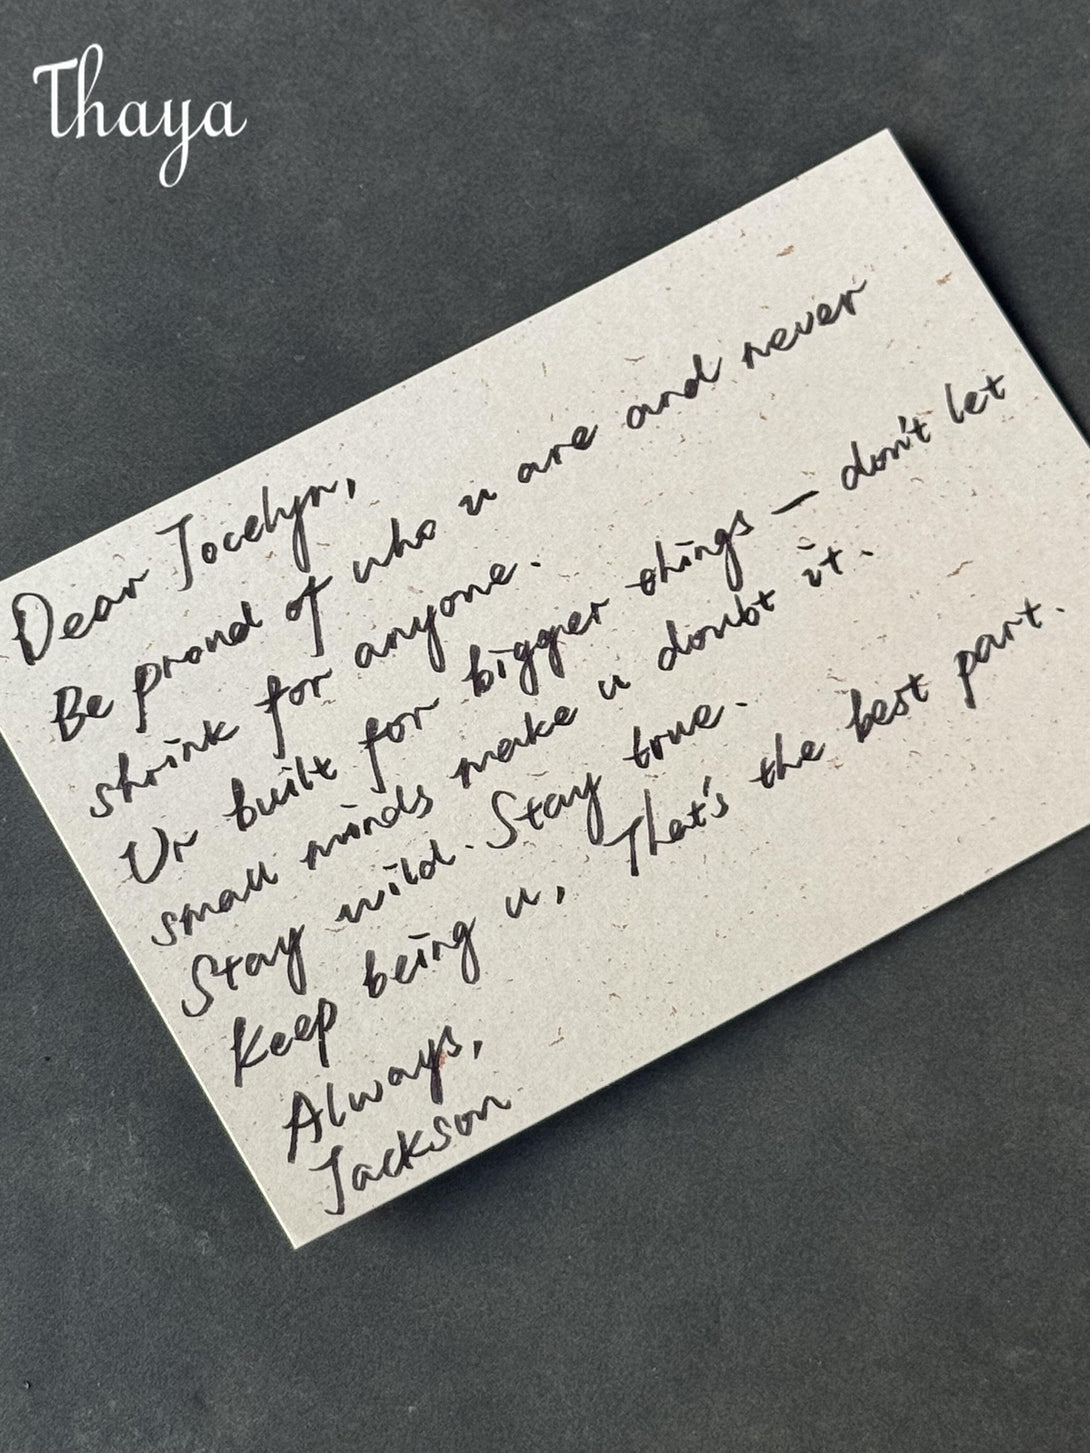 Thaya
Dear Jocelyn,
Be proud of who u are and never
shrink for anyone.
Ur built for bigger things — don't let
small minds make u doubt it.
Stay wild. Stay true.
Keep being u, That's the best part.
Always,
Jackson